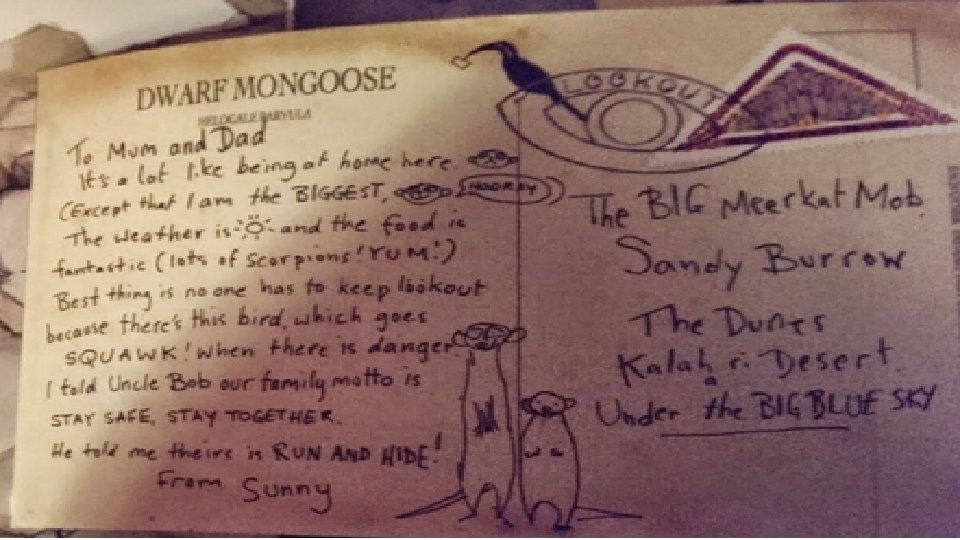 DWARF MONGOOSE
HELOGALE PARVULA
To Mum and Dad
It's a lot like being at home here
(Except that I am the BIGGEST,
HOORAY)
The weather is and the food is
fantastic (lots of scorpions! YUM!)
Best thing is no one has to keep lookout
because there's this bird, which goes
SQUAWK! when there is danger
I told Uncle Bob our family motto is
STAY SAFE, STAY TOGETHER.
He told me theirs is RUN AND HIDE!
From Sunny
LOOKOUT
The BIG Meerkat Mob
Sandy Burrow
The Dunes
Kalahari Desert.
Under the BIG BLUE SKY